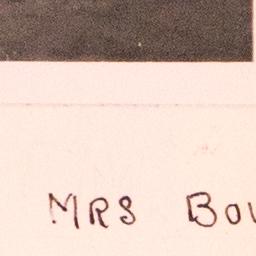 MRS BOU